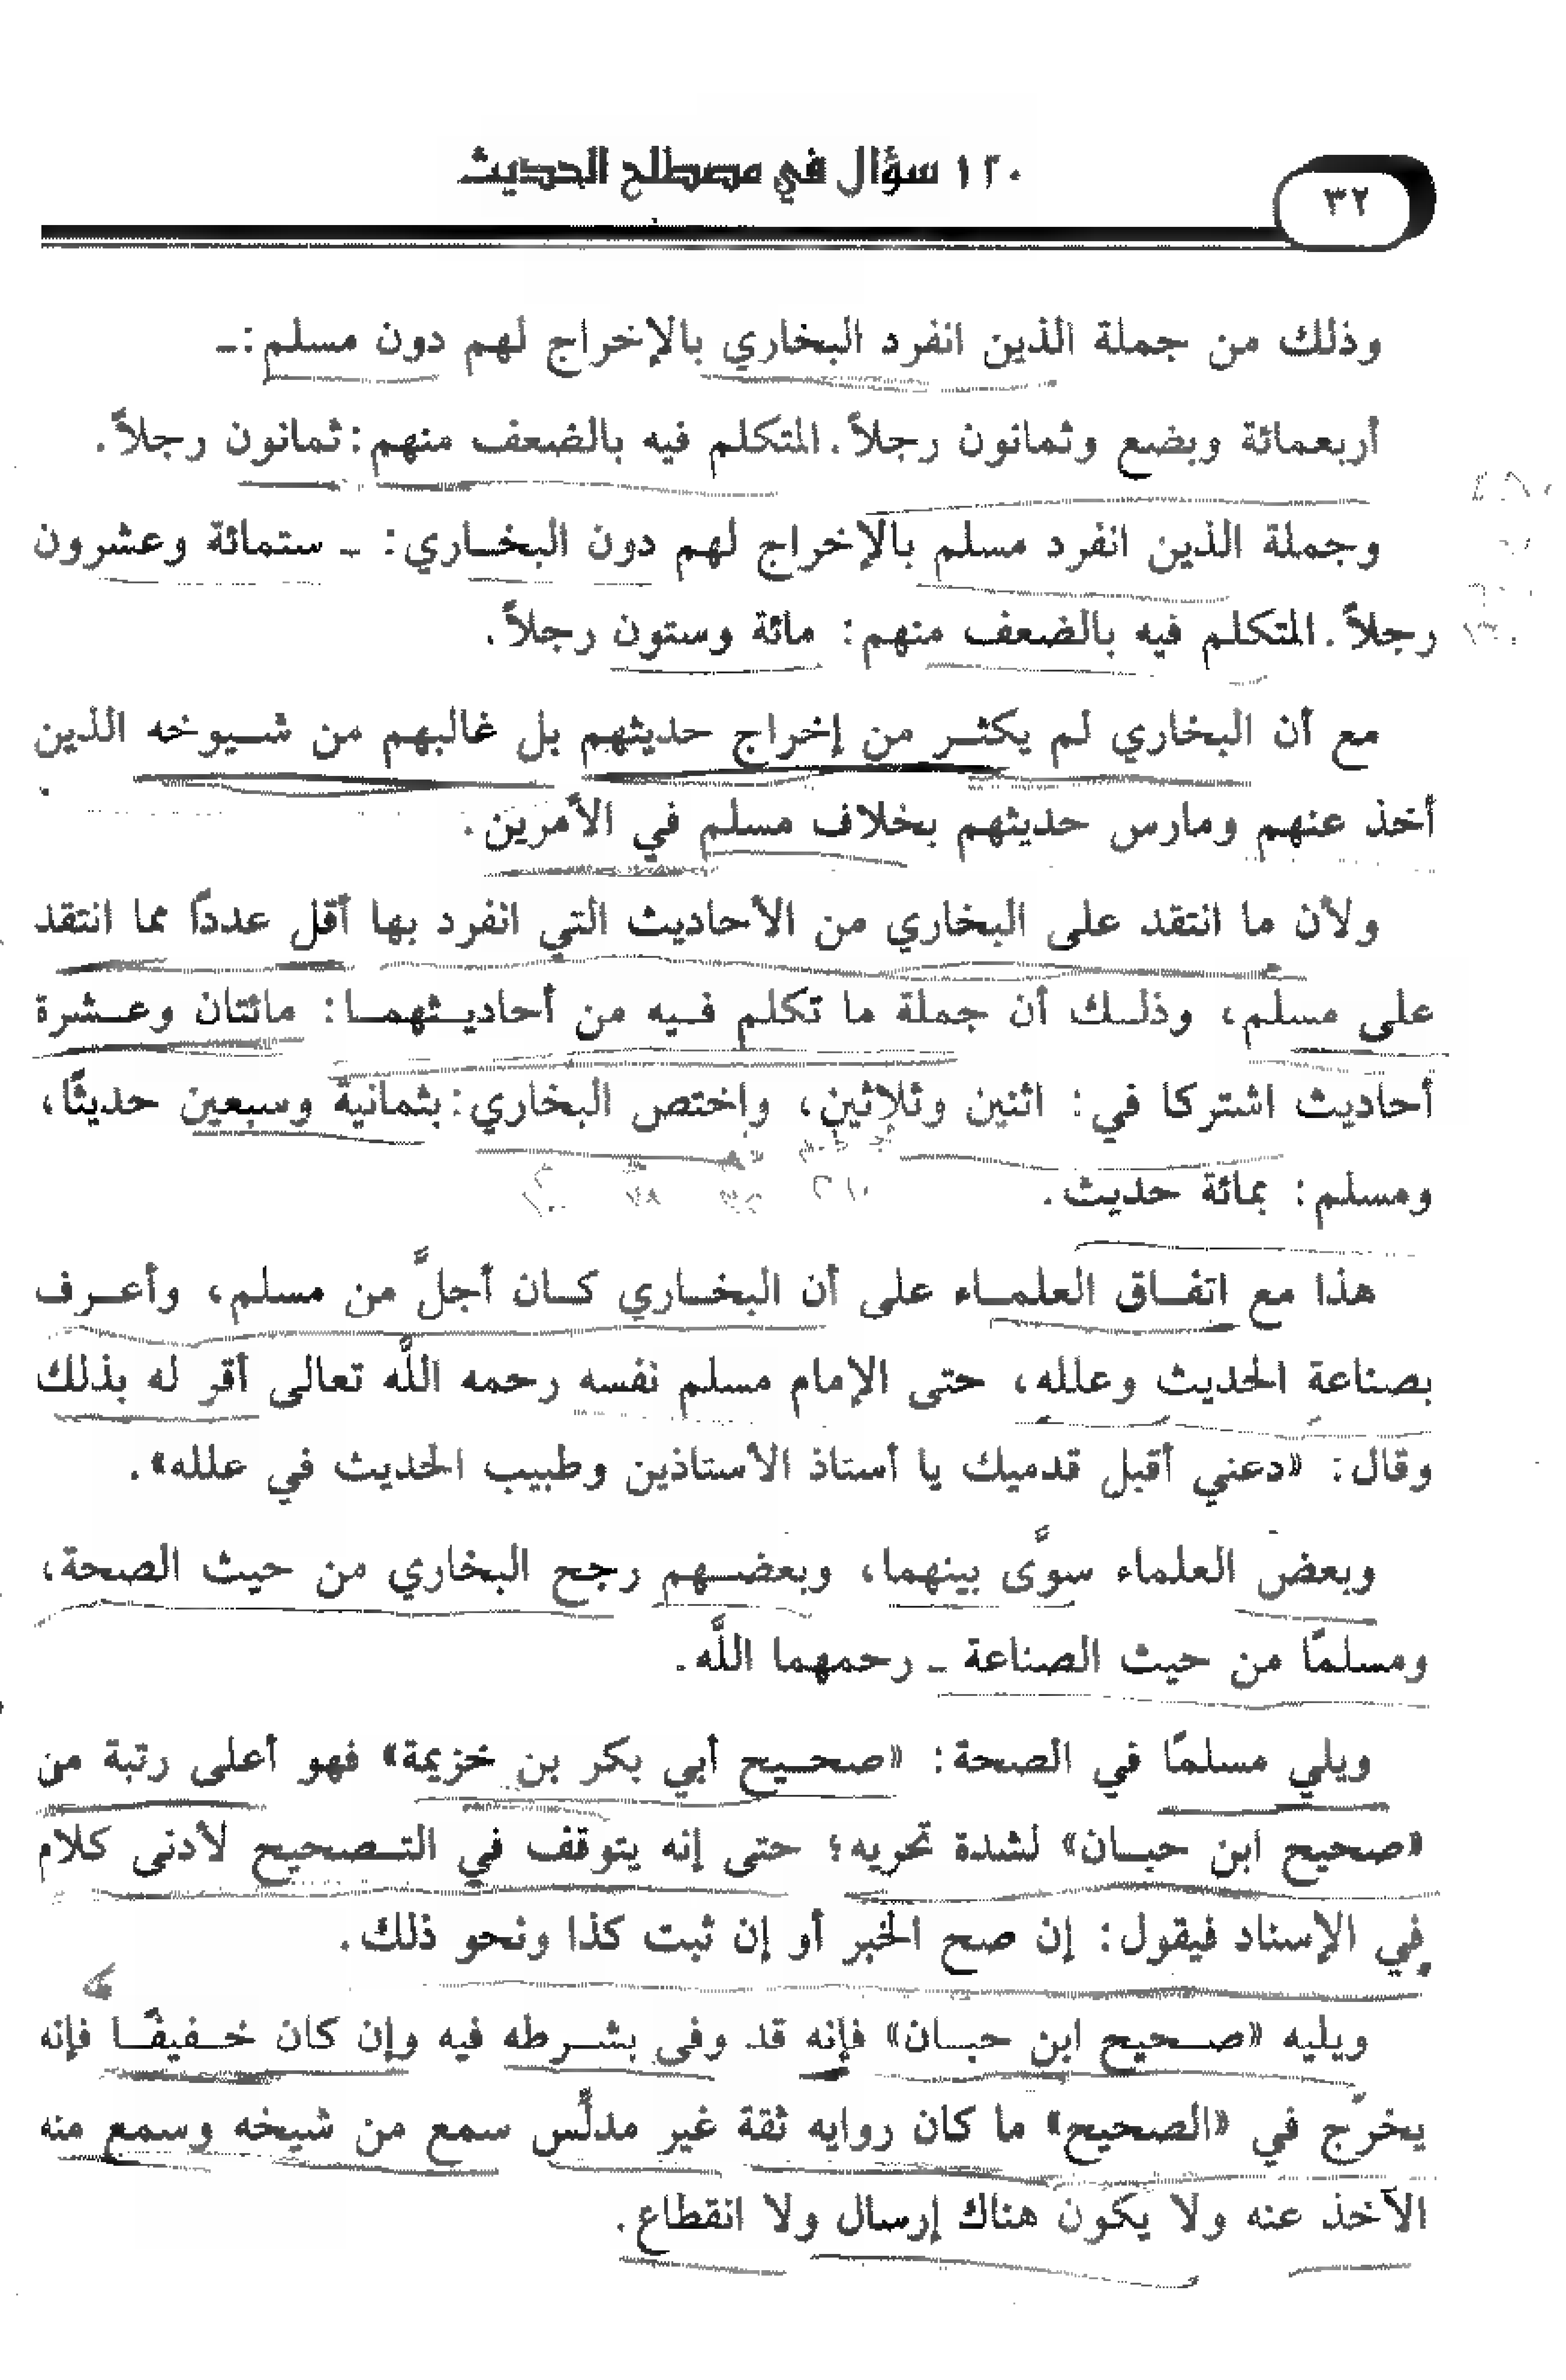 ١٢٠ سؤال في مصطلح الحديث
٣٢
وذلك من جملة الذين انفرد البخاري بالإخراج لهم دون مسلم:ـ
أربعمائة وبضع وثمانون رجلاً. المتكلم فيه بالضعف منهم: ثمانون رجلاً.
وجملة الذين انفرد مسلم بالإخراج لهم دون البخـاري: ـ ستمائة وعشرون
رجلاً. المتكلم فيه بالضعف منهم: مائة وستون رجلاً.
مع أن البخاري لم يكثـر من إخراج حديثهم بل غالبهم من شـيوخه الذين
أخذ عنهم ومارس حديثهم بخلاف مسلم في الأمرين.
ولأن ما انتقد على البخاري من الأحاديث التي انفرد بها أقل عددًا مما انتقد
على مسلم، وذلـك أن جملة ما تكلم فـيه من أحاديـثهمـا: مائتان وعـشرة
أحاديث اشتركا في: اثنين وثلاثين، واختص البخاري: بثمانية وسبعين حديثًا،
ومسلم: بمائة حديث.
٢١٠ ٣٢ ٧٨ ١٠٠
هذا مع اتفـاق العلمـاء على أن البخـاري كـان أجلَّ من مسلم، وأعـرف
بصناعة الحديث وعلله، حتى الإمام مسلم نفسه رحمه اللَّه تعالى أقر له بذلك
وقال: «دعني أقبل قدميك يا أستاذ الأستاذين وطبيب الحديث في علله».
وبعض العلماء سوَّى بينهما، وبعضـهم رجح البخاري من حيث الصحة،
ومسلمًا من حيث الصناعة ـ رحمهما اللَّه.
ويلي مسلمًا في الصحة: «صحـيح أبي بكر بن خزيمة» فهو أعلى رتبة من
«صحيح ابن حبـان» لشدة تحريه؛ حتى إنه يتوقف في التـصحيح لأدنى كلام
في الإسناد فيقول: إن صح الخبر أو إن ثبت كذا ونحو ذلك.
ويليه «صـحيح ابن حبـان» فإنه قد وفى بشـرطه فيه وإن كان خـفيفًـا فإنه
يخرّج في «الصحيح» ما كان روايه ثقة غير مدلَّس سمع من شيخه وسمع منه
الآخذ عنه ولا يكون هناك إرسال ولا انقطاع.